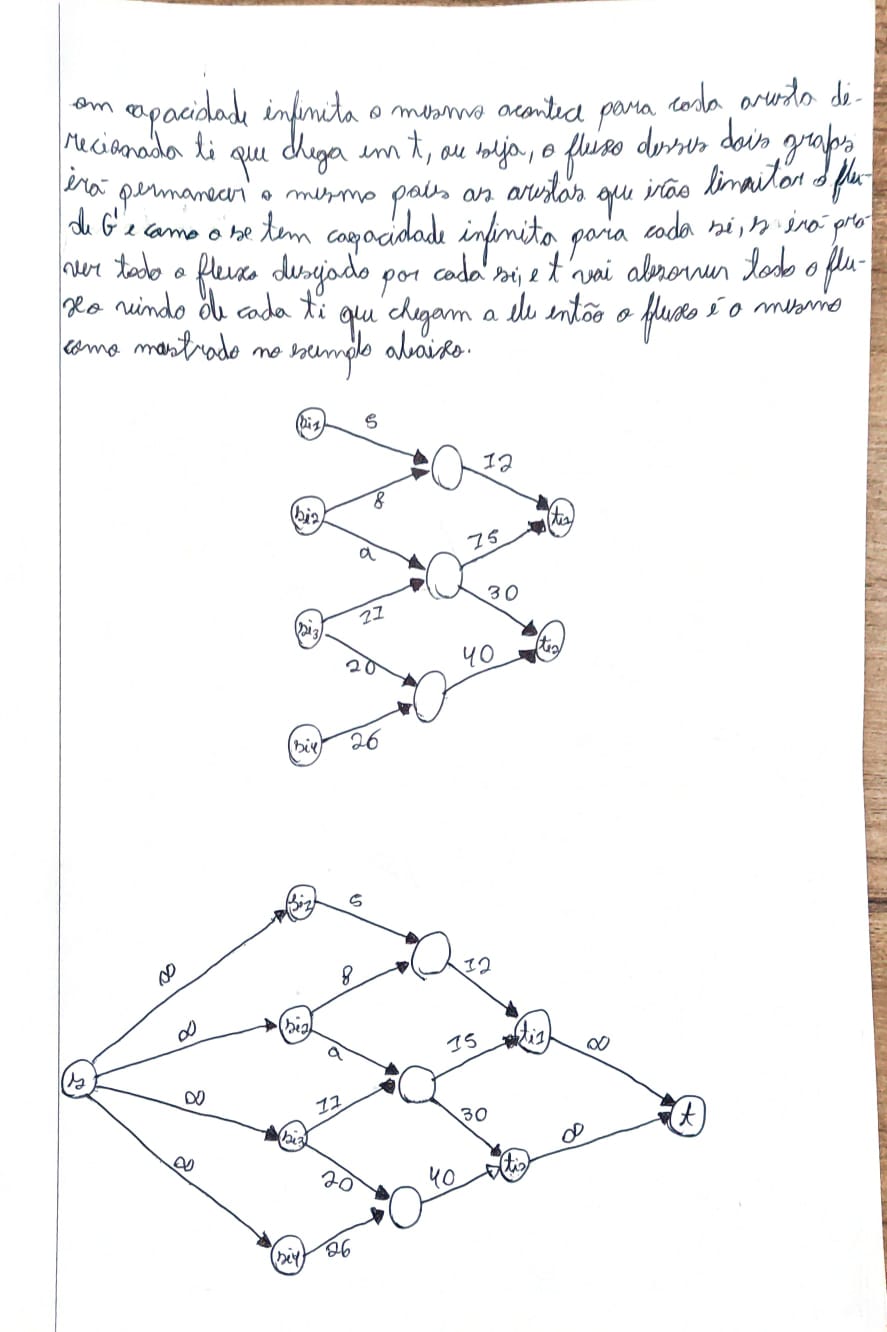 em capacidade infinita o mesmo acontece para cada aresta di-
recionada ti que chega em t, ou seja, o fluxo desses dois grafos
irá permanecer o mesmo pois as arestas que irão limitar o flu-
de G' e como o se tem capacidade infinita para cada si, s irá pro-
ver todo o fluxo desejado por cada si, e t vai absorver todo o flu-
xo vindo de cada ti que chegam a ele então o fluxo é o mesmo
como mostrado no exemplo abaixo.
si1 5
12
si2 8 ti1
a 15
30
si3 11 ti2
20 40
si4 26
si1 5
∞ 8 12
∞ si2 15 ti1 ∞
a
s ∞ 11 30 t
si3 ∞
∞ 20 40 ti2
si4 26